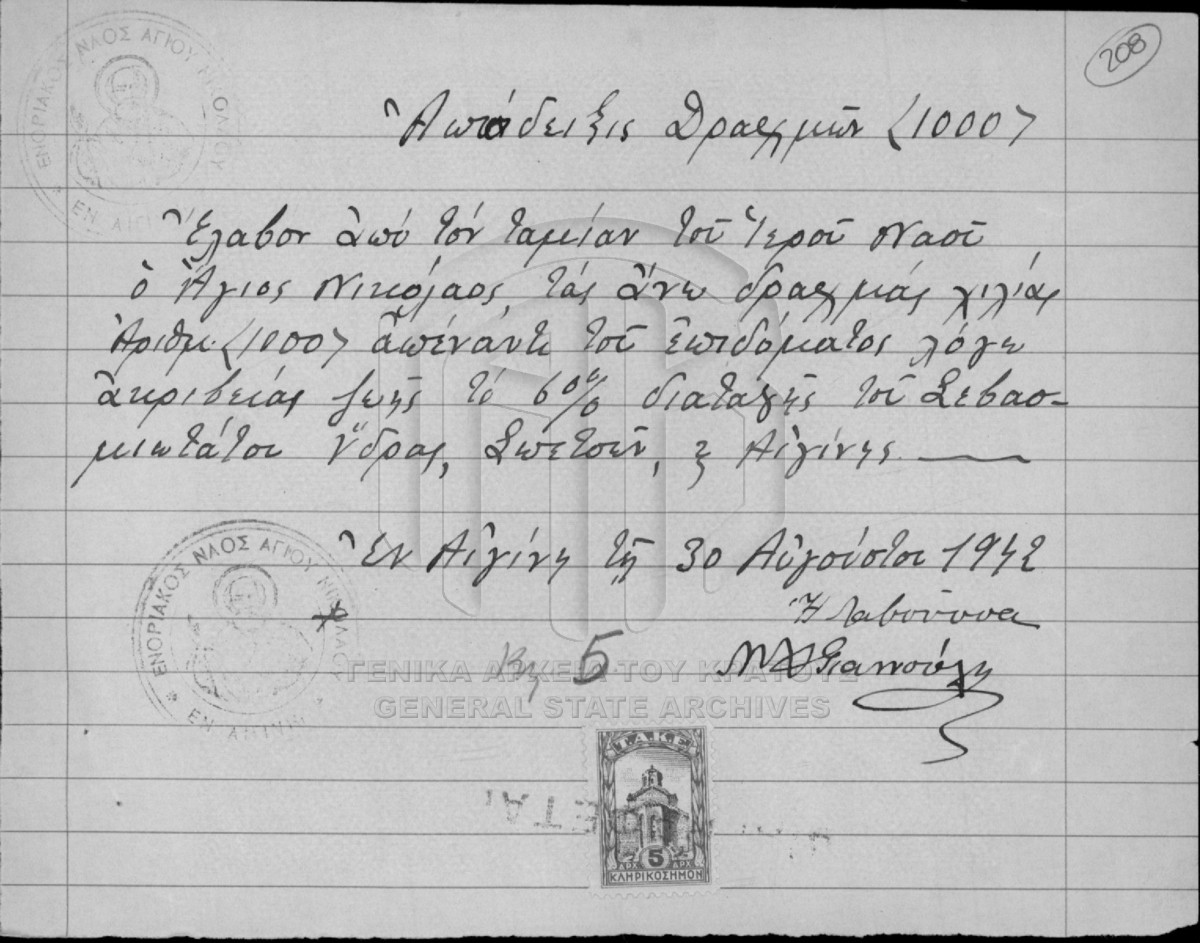 208
ΕΝΟΡΙΑΚΟΣ ΝΑΟΣ ΑΓΙΟΥ ΝΙΚΟΛΑΟΥ
ΕΝ ΑΙΓΙΝΗ
Ἀπόδειξις Δραχμῶν (1000)
Ἔλαβον ἀπό τόν ταμίαν τοῦ Ἱεροῦ Ναοῦ
ὁ Ἅγιος Νικόλαος, τάς ἄνω δραχμάς χιλίας
Ἀριθμ. (1000) ἀπέναντι τοῦ ἐπιδόματος λόγω
ἀκριβείας ζωῆς τό 60% διαταγῆς τοῦ Σεβασ-
μιωτάτου Ὕδρας, Σπετσῶν, ϗ Αἰγίνης.
Ἐν Αἰγίνῃ τῇ 30 Αὐγούστου 1942
Ἡ λαβοῦσα
ΕΝΟΡΙΑΚΟΣ ΝΑΟΣ ΑΓΙΟΥ ΝΙΚΟΛΑΟΥ
ΕΝ ΑΙΓΙΝΗ
5
Γιαννούλη
ΓΕΝΙΚΑ ΑΡΧΕΙΑ ΤΟΥ ΚΡΑΤΟΥΣ
GENERAL STATE ARCHIVES
Τ.Α.Κ.Ε.
ΔΡΧ 5 ΔΡΧ
ΚΛΗΡΙΚΟΣΗΜΟΝ